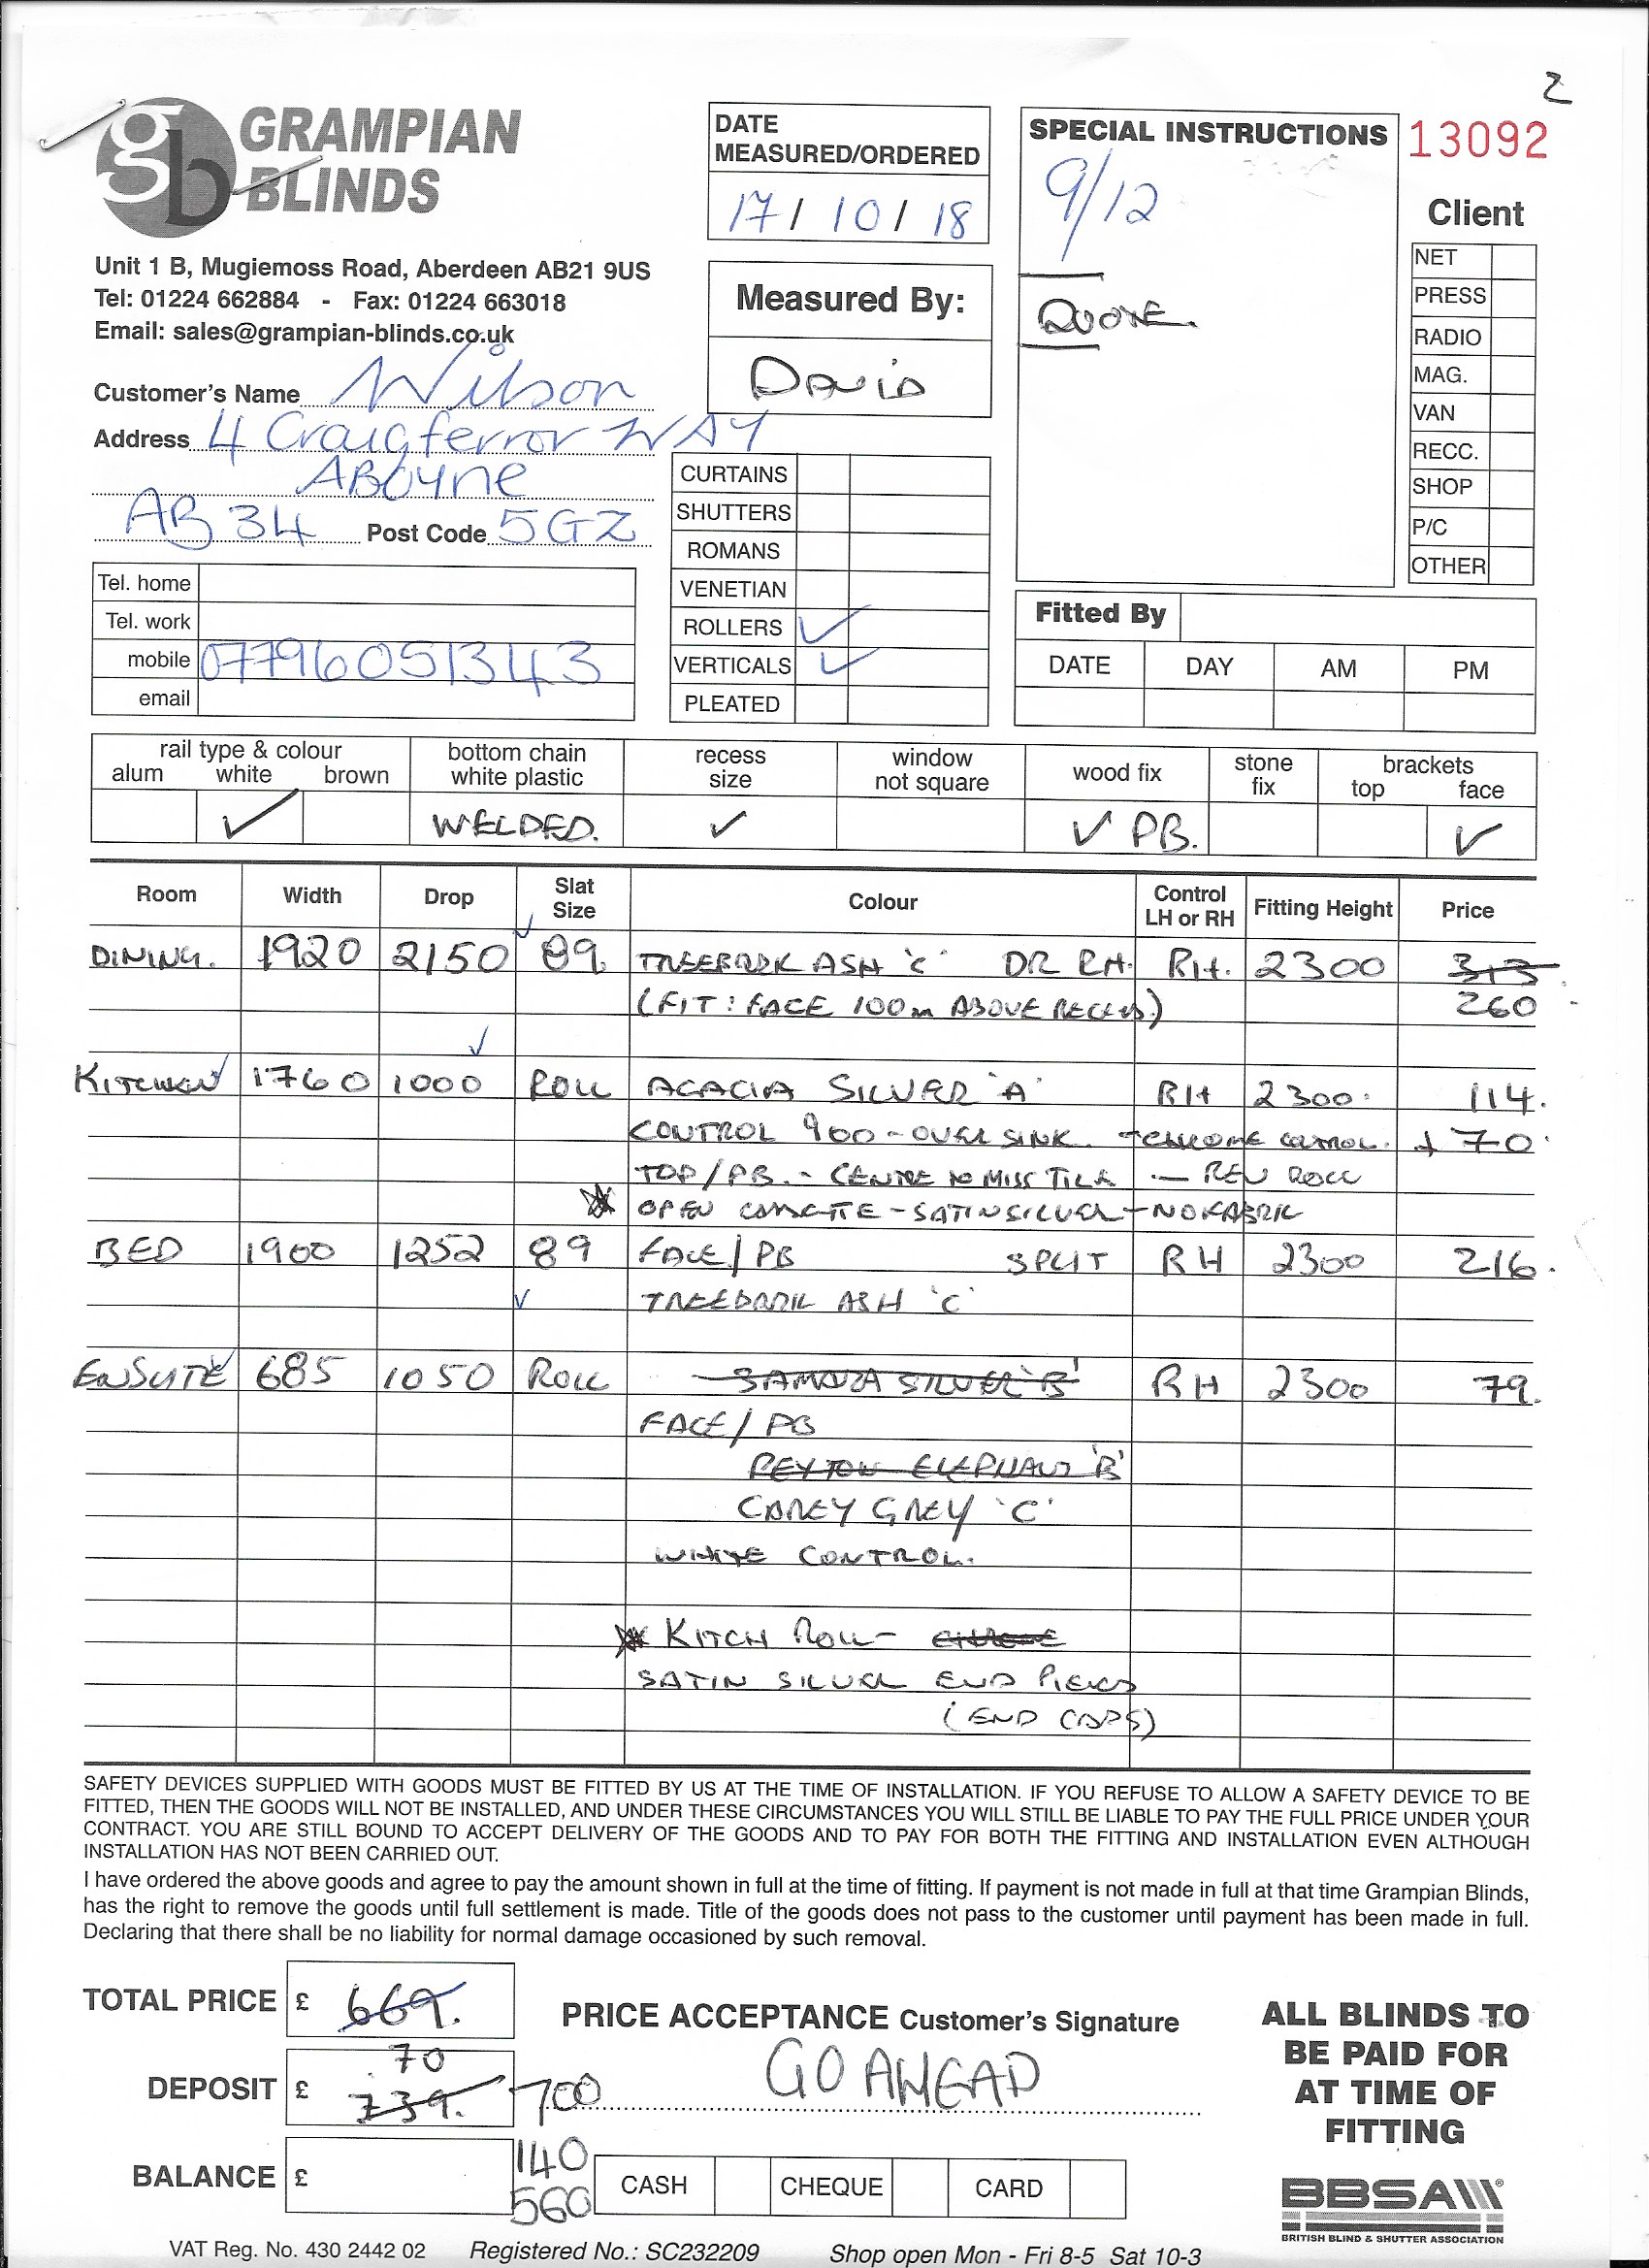 2
GRAMPIAN
BLINDS
gb
Unit 1 B, Mugiemoss Road, Aberdeen AB21 9US
Tel: 01224 662884 - Fax: 01224 663018
Email: sales@grampian-blinds.co.uk
Customer's Name Wilson
Address 4 Craigferrar WAY
ABoyne
AB 34 Post Code 5GZ
Tel. home
Tel. work
mobile 07796051343
email
DATE
MEASURED/ORDERED
17/10/18
Measured By:
DAVID
CURTAINS
SHUTTERS
ROMANS
VENETIAN
ROLLERS ✓
VERTICALS ✓
PLEATED
SPECIAL INSTRUCTIONS
9/12
QUOTE.
13092
Client
NET
PRESS
RADIO
MAG.
VAN
RECC.
SHOP
P/C
OTHER
Fitted By
DATE DAY AM PM
rail type & colour bottom chain recess window wood fix stone brackets
alum white brown white plastic size not square fix top face
✓ WELDED. ✓ ✓ PB. ✓
Room Width Drop Slat Size Colour Control LH or RH Fitting Height Price
DINING. 1920 2150 89. TREEBARK ASH 'C' DR RH. RH. 2300 313
(FIT: FACE 100m ABOVE RECESS) 260
KITCHEN 1760 1000 ROLL ACACIA SILVER 'A' RH 2300 114.
CONTROL 900 - OVER SINK. + CHROME CONTROL. + 70.
TOP/PB. - CENTRE TO MISS TILE - REV ROLL
OPEN CASSETTE - SATIN SILVER - NO FABRIC
BED 1900 1252 89 FACE/PB SPLIT RH 2300 216.
TREEBARK ASH 'C'
ENSUITE 685 1050 ROLL SAMOZA SILVER 'B' RH 2300 79.
FACE/PB
PEYTON ELEPHANT 'B'
CAREY GREY 'C'
WHITE CONTROL.
* KITCH ROLL - CHROME
SATIN SILVER END PIECES
(END CAPS)
SAFETY DEVICES SUPPLIED WITH GOODS MUST BE FITTED BY US AT THE TIME OF INSTALLATION. IF YOU REFUSE TO ALLOW A SAFETY DEVICE TO BE
FITTED, THEN THE GOODS WILL NOT BE INSTALLED, AND UNDER THESE CIRCUMSTANCES YOU WILL STILL BE LIABLE TO PAY THE FULL PRICE UNDER YOUR
CONTRACT. YOU ARE STILL BOUND TO ACCEPT DELIVERY OF THE GOODS AND TO PAY FOR BOTH THE FITTING AND INSTALLATION EVEN ALTHOUGH
INSTALLATION HAS NOT BEEN CARRIED OUT.
I have ordered the above goods and agree to pay the amount shown in full at the time of fitting. If payment is not made in full at that time Grampian Blinds,
has the right to remove the goods until full settlement is made. Title of the goods does not pass to the customer until payment has been made in full.
Declaring that there shall be no liability for normal damage occasioned by such removal.
TOTAL PRICE £ 669.
70
DEPOSIT £ 739. 700
140
BALANCE £ 560
PRICE ACCEPTANCE Customer's Signature
GO AHEAD
CASH CHEQUE CARD
ALL BLINDS TO
BE PAID FOR
AT TIME OF
FITTING
BBSA
BRITISH BLIND & SHUTTER ASSOCIATION
VAT Reg. No. 430 2442 02 Registered No.: SC232209 Shop open Mon - Fri 8-5 Sat 10-3